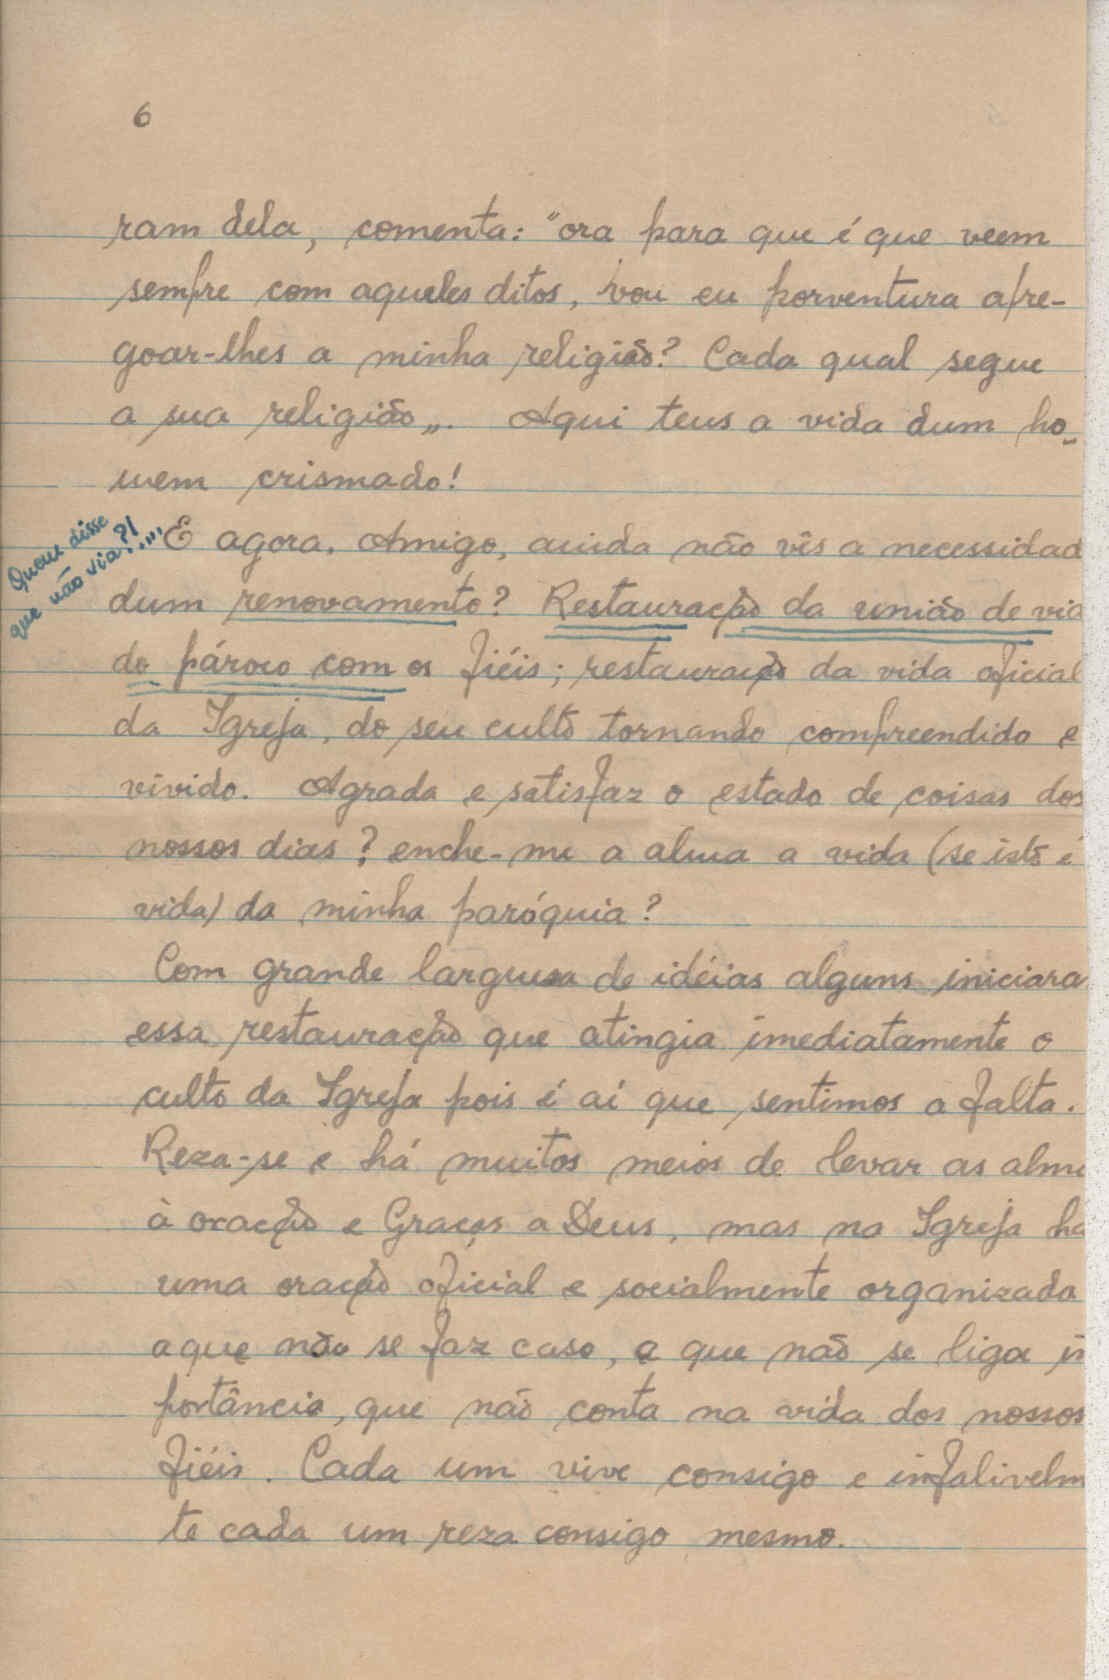 6
ram dela, comenta: "ora para que é que veem
sempre com aqueles ditos, vou eu porventura apre-
goar-lhes a minha religião? Cada qual segue
a sua religião„. Aqui tens a vida dum ho-
mem crismado!
Quem disse
que não via?!...
E agora, Amigo, ainda não vês a necessidad
dum renovamento? Restauração da união de vid
do pároco com os fiéis; restauração da vida oficial
da Igreja, do seu culto tornando compreendido e
vivido. Agrada e satisfaz o estado de coisas dos
nossos dias? enche-me a alma a vida (se isto é
vida) da minha paróquia?
Com grande largueza de idéias alguns iniciara
essa restauração que atingia imediatamente o
culto da Igreja pois é aí que sentimos a falta.
Reza-se e há muitos meios de levar as alma
à oração e Graças a Deus, mas na Igreja há
uma oração oficial e socialmente organizada
a que não se faz caso, a que não se liga im
portância, que não conta na vida dos nossos
fiéis. Cada um vive consigo e infalivelm
te cada um reza consigo mesmo.